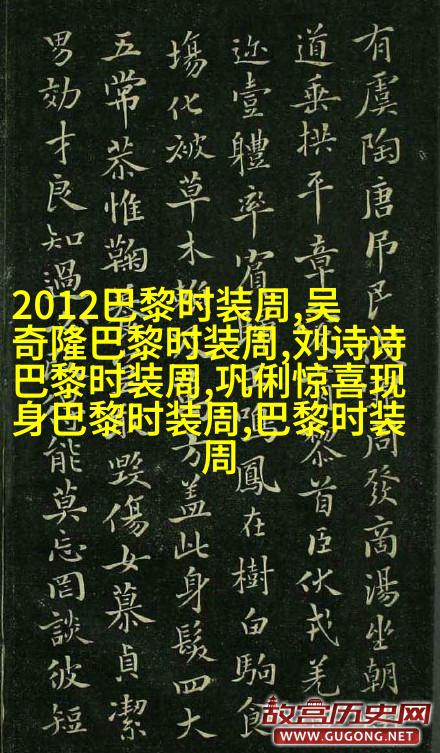 有虞陶唐吊民周發商湯坐朝
道垂拱平章黎首臣伏戎羌
迩壹體率賓鳴鳳在樹白駒食
塲化被草木方蓋此身髮四大
五常恭惟鞠毀傷女慕貞潔
男効才良知過能莫忘罔談彼短
2012巴黎时装周,吴
奇隆巴黎时装周,刘诗诗
巴黎时装周,巩俐惊喜现
身巴黎时装周,巴黎时装
周
故宫历史网
WWW.GUGONG.NET